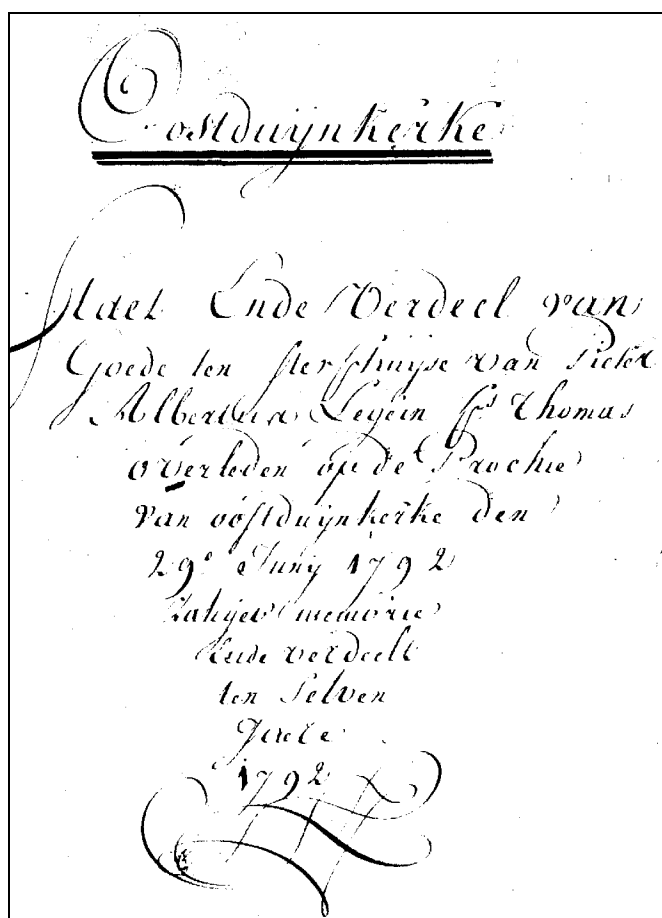 Oostduijnkerke
Staet Ende Verdeel van
Goede ten sterfhuijse van Pieter
Albertus Legein fs Thomas
overleden op de Prochie
van oostduijnkerke den
29e Juny 1792
Zalyer memorie
Ende verdeelt
ten selven
Jaere
1792